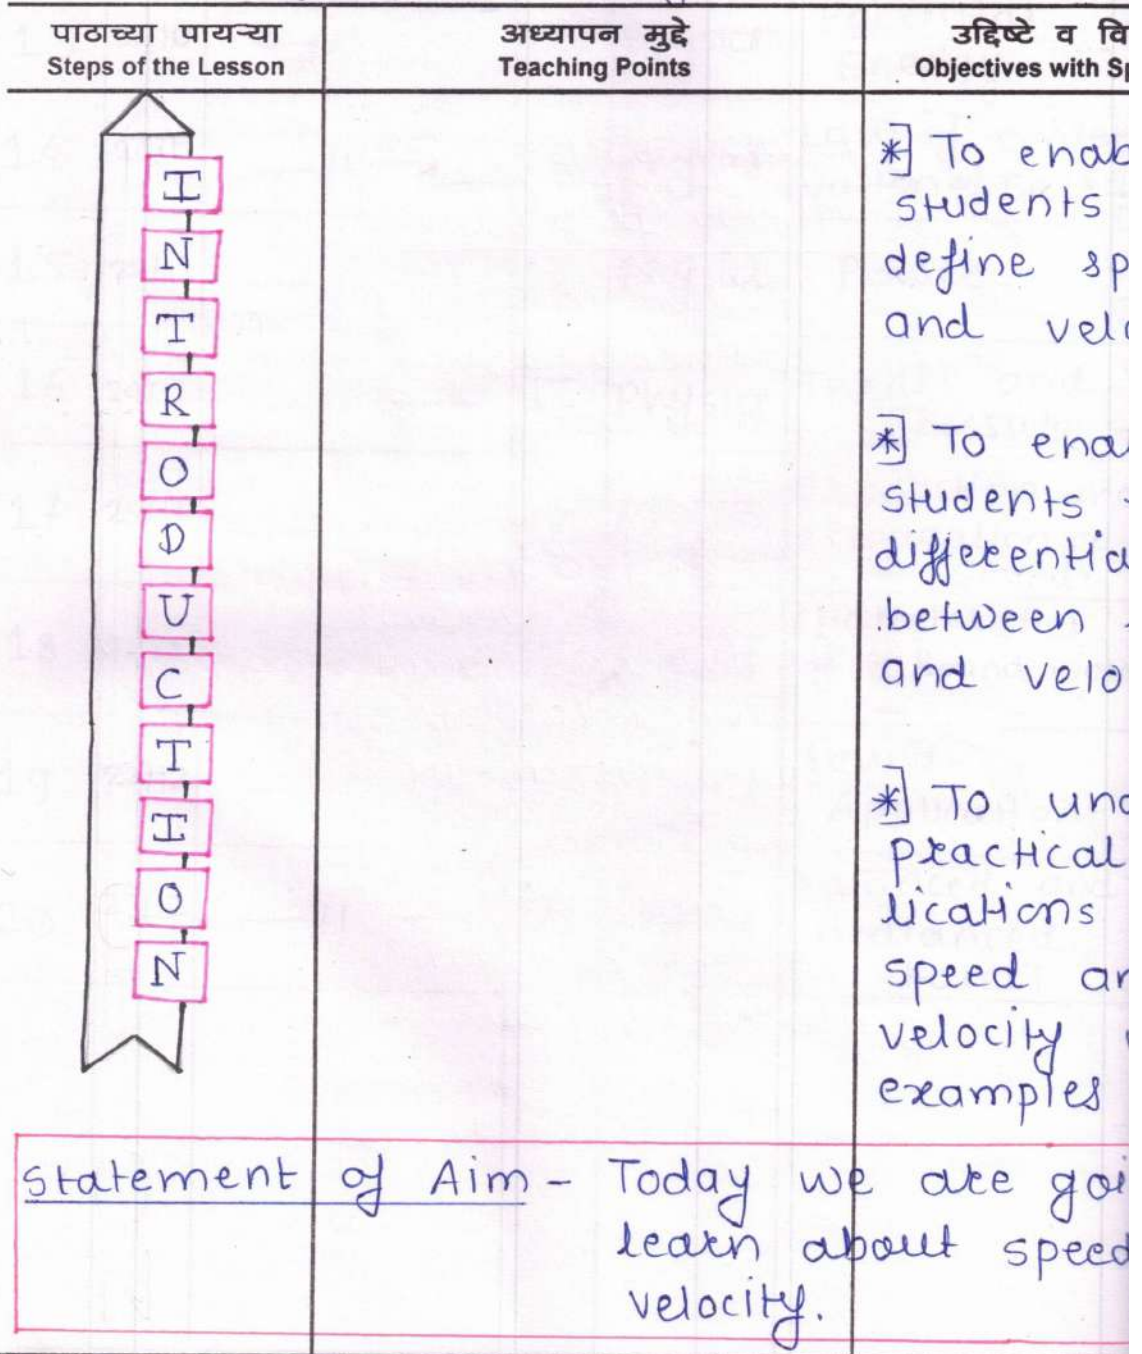 पाठाच्या पायऱ्या
Steps of the Lesson
अध्यापन मुद्दे
Teaching Points
उद्दिष्टे व वि
Objectives with Sp
I
N
T
R
O
D
U
C
T
I
O
N
*] To enab
students
define sp
and velo
*] To enab
students
differentia
between
and velo
*] To und
practical
lications
speed an
velocity
examples
Statement of Aim - Today we are goi
learn about speed
velocity.